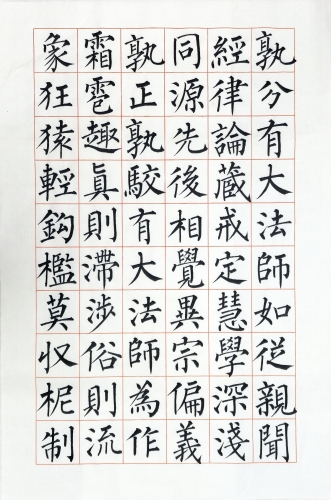 孰分有大法師如従親聞
經律論蔵戒定慧學深淺
同源先後相覺異宗偏義
孰正孰駮有大法師為作
霜雹趣真則滞渉俗則流
象狂猿輕鈎檻莫収柅制